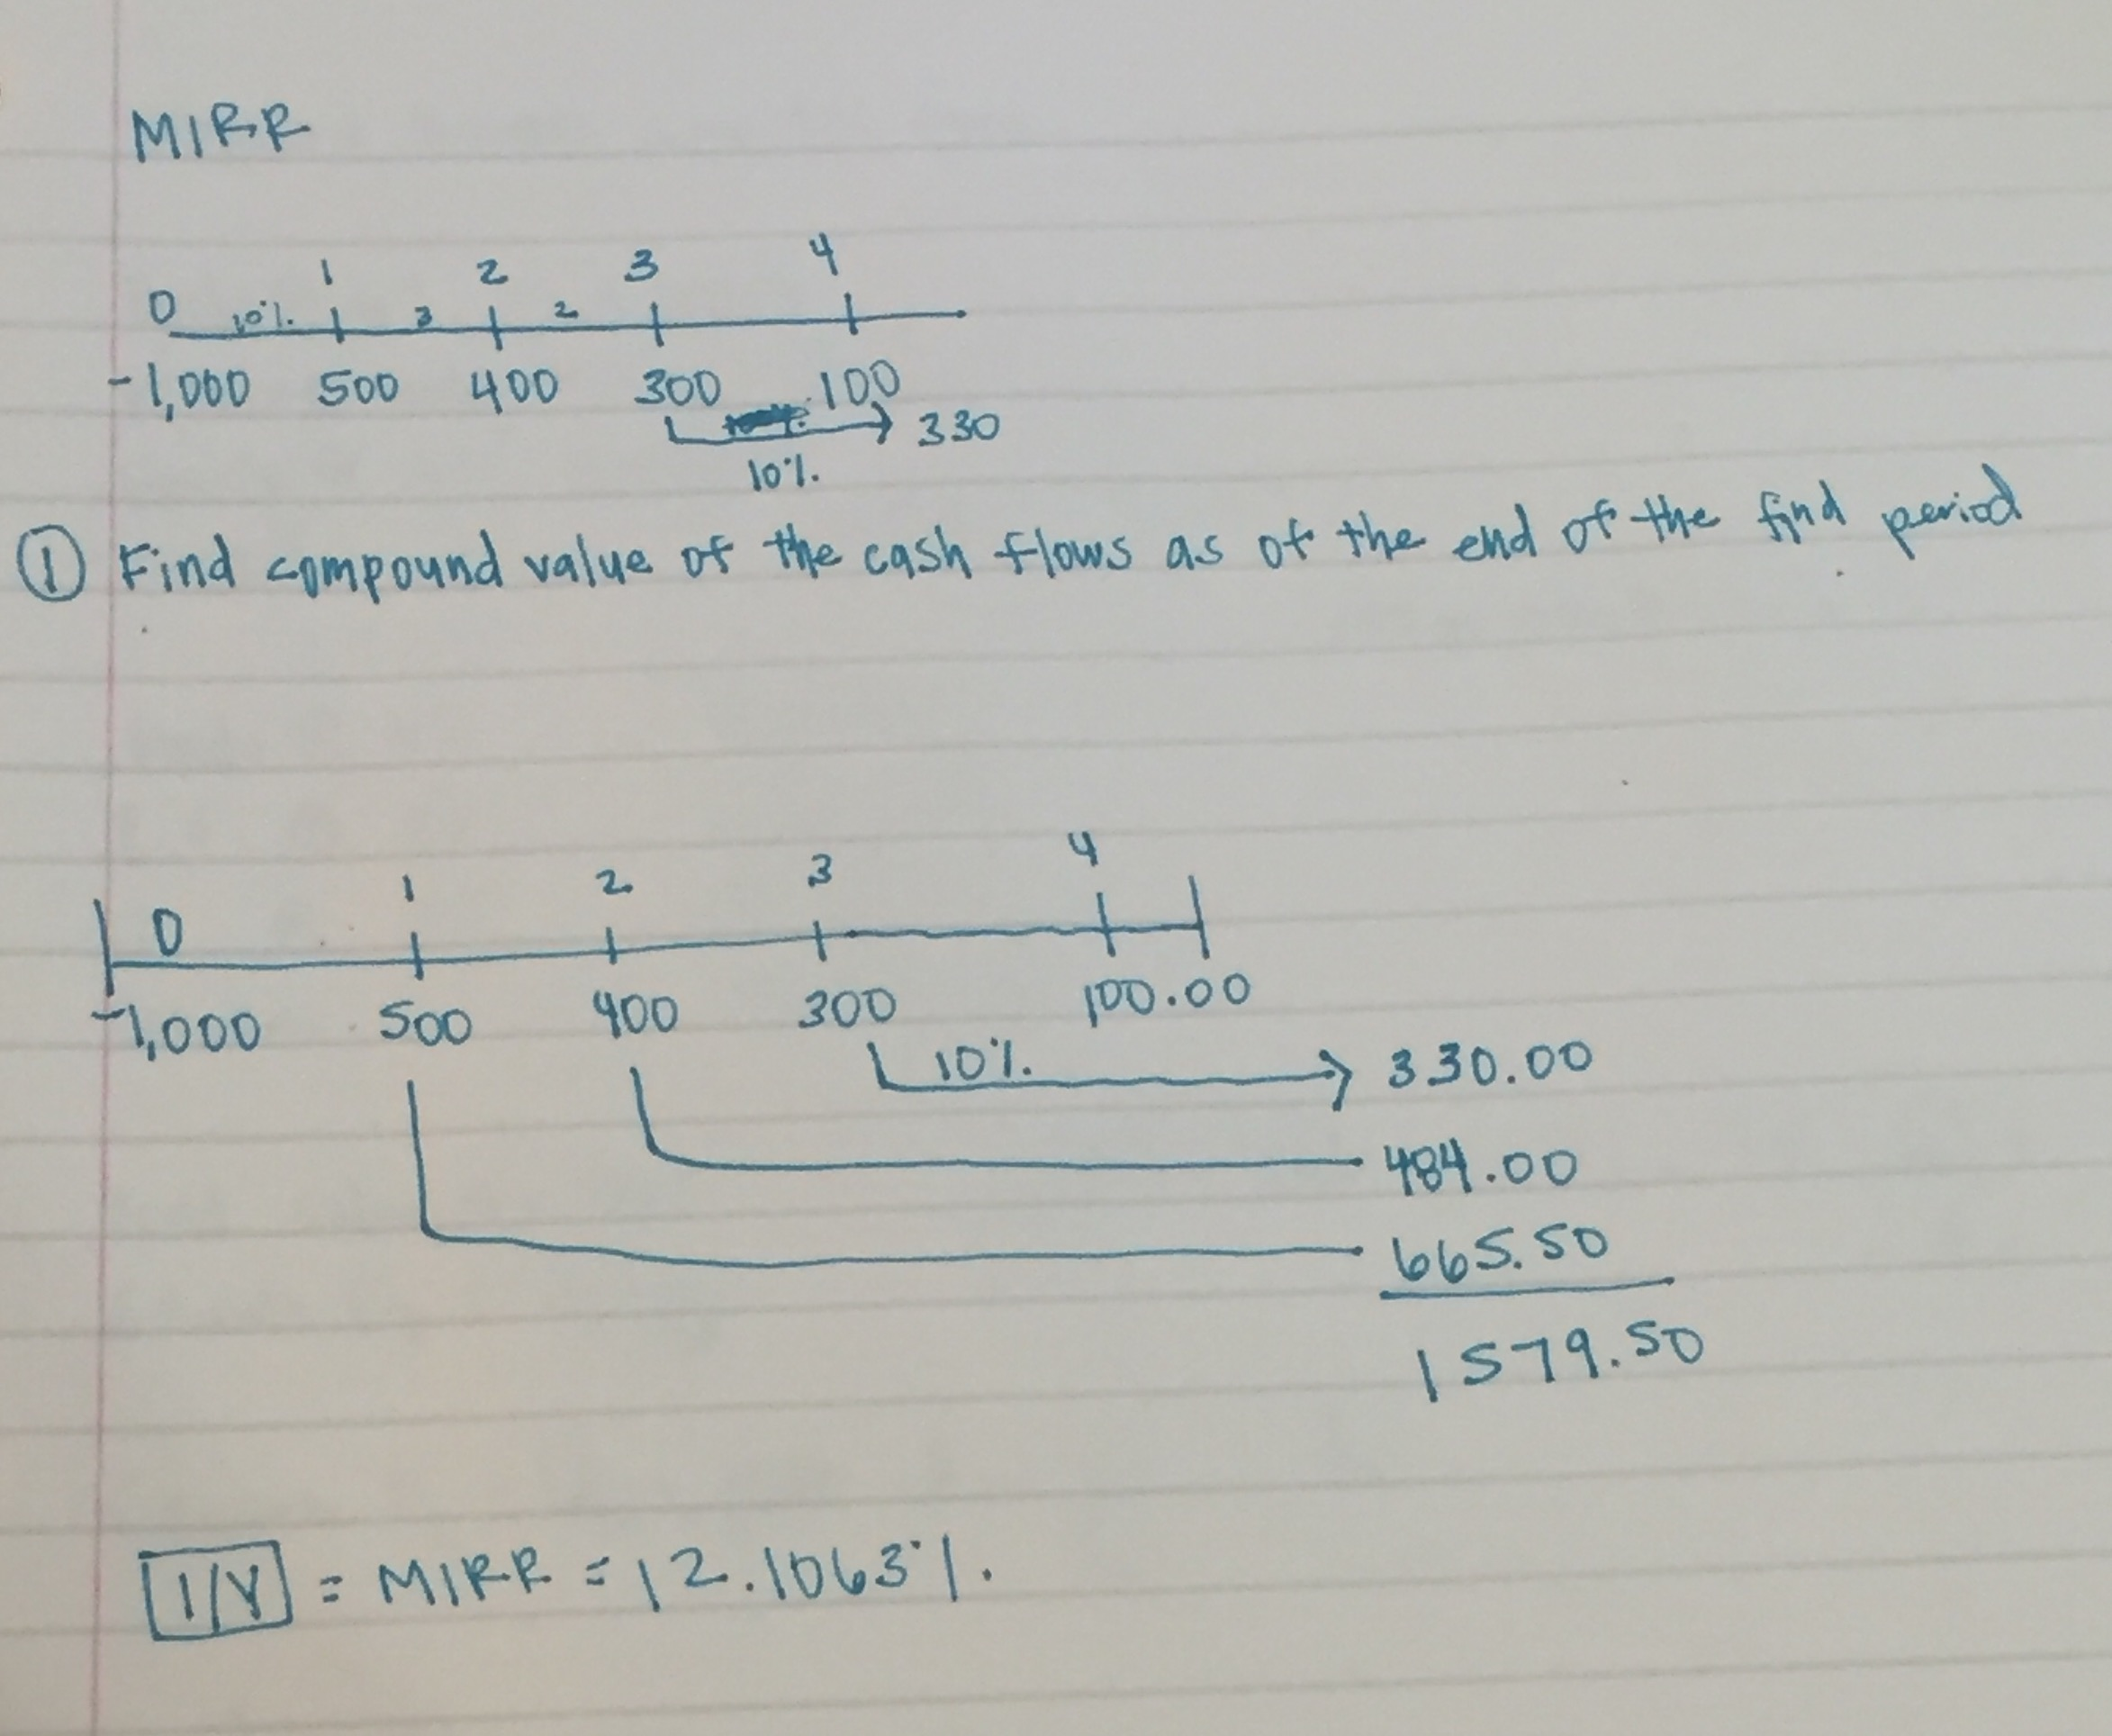 MIRR
0 10% 1 3 2 2 3 4
-1,000 500 400 300 100
330
10%
① Find compound value of the cash flows as of the end of the find period
0 1 2 3 4
-1,000 500 400 300 100.00
10% 330.00
484.00
665.50
1579.50
I/Y = MIRR = 12.1063%.